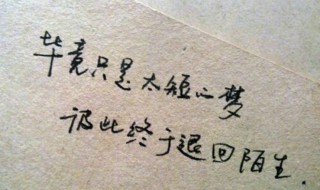 毕竟只是太短的梦
彼此终于退回陌生.